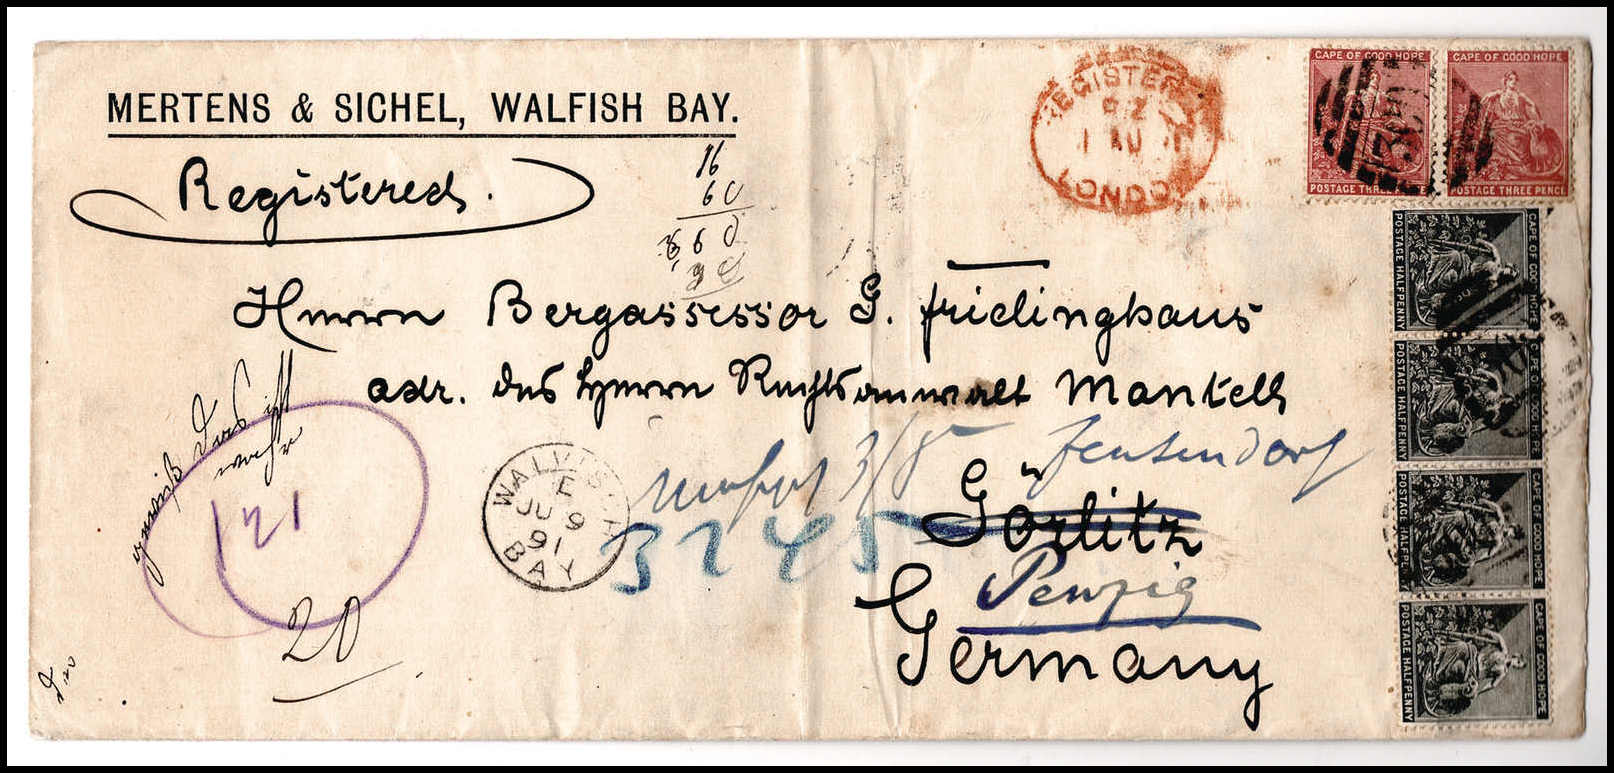 MERTENS & SICHEL, WALFISH BAY.
Registered.
16
60
REGISTERED
1 AU
LONDON
CAPE OF GOOD HOPE
POSTAGE THREE PENCE
CAPE OF GOOD HOPE
POSTAGE THREE PENCE
CAPE OF GOOD HOPE
POSTAGE HALFPENNY
CAPE OF GOOD HOPE
POSTAGE HALFPENNY
CAPE OF GOOD HOPE
POSTAGE HALFPENNY
CAPE OF GOOD HOPE
POSTAGE HALFPENNY
Herrn Bergassessor G. Fridinghaus
adr. des Herrn Rechtsanwalt Mantell
3/8
Görlitz
Penzig
Germany
WALVISCH
E
JU 9
91
BAY
3245
121
20